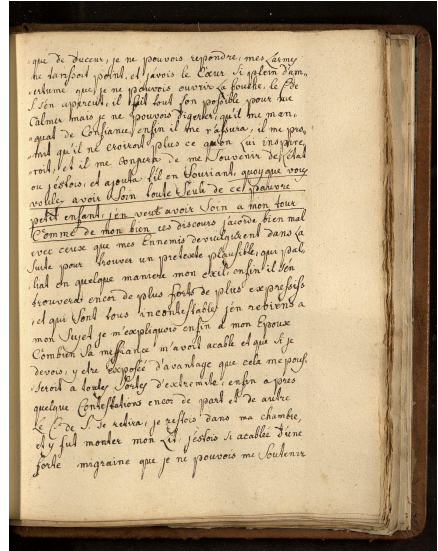 que de duceur, je ne pouvois repondre, mes Larmes
ne tarissoit point, et javois le Cœur si plein d'am„
„ertume que je ne pouvois ouvrir La bouche, le C.te de
S. s'en apercut, il fait tout son possible pour me
Calmer mais je ne pouvois digerer qu'il me man„
„quat de Confiance, enfin il me r'assura, il me pro„
„mit qu'il ne croiroit plus ce qu'on Lui inspire„
„roit, et il me conjura de me Souvenir de l'état
ou j'estois, et ajouta t'il en Souriant, quoyque vous
voules avoir Soin toute Seule de cet pauvre
petit enfant, j'en veut avoir Soin a mon tour
Comme de mon bien, ces discours s'acorde bien mal
avec ceux que mes Ennemis devulguerent dans La
Suite pour trouver un pretexte plausible, qui pal„
liat en quelque maniere mon exil, enfin il s'en
trouverat encor de plus forts de plus expressifs
, et qui Sont tous incontestables, j'en reviens a
mon Sujet je m'expliquois enfin a mon Epoux
Combien Sa mefiance m'avoit acablé et que Si je
devois, y etre exposée d'avantage que cela me pous„
„seroit a toutes Sortes d'extremité, enfin apres
quelque Contestations encor de part et de autre
Le C.te de S. se retira, je restois dans ma chambre,
et y fut monter mon Lit, j'estois si acablée d'une
forte migraine que je ne pouvois me Soutenir